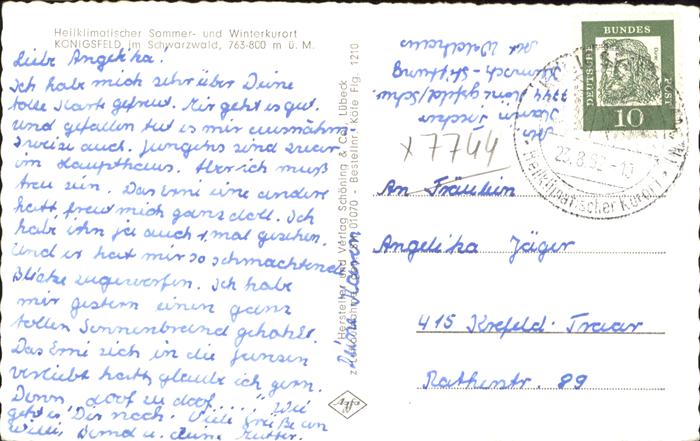 Heilklimatischer Sommer- und Winterkurort
KÖNIGSFELD im Schwarzwald, 763-800 m ü. M.
Liebe Angelika.
Ich habe mich sehr über Deine
tolle Karte gefreut. Mir geht es gut.
und gefallen tut es mir ausnahms
weise auch. Jungens sind zwar
im Haupthaus. Aber ich muß
treu sein. Das Erni eine andere
hatt, freut mich ganz doll. Ich
habe ihn ja auch 1 mal gesehen.
Und er hat mir so schmachtende
Blicke zugeworfen. Ich habe
mir gestern einen ganz
tollen Sonnenbrand geholt.
Das Erni sich in die
verliebt hatt, glaube ich gern.
Denn, doof zu doof..... Wie
geht es Dir noch. Viele Grüße an
Willi, Bernd u. deine Mutter.
Deine Karin
Hersteller und Verlag Schöning & Co., Lübeck
01070 - Bestellnr. Köfe Flg. 1210
Agfa
Abs.
Karin
7744 Königsfeld/Schw.
x 7744
DEUTSCHE BUNDESPOST
10
23.8.
Heilklimatischer Kurort
An Fräulein
Angelika Jäger
415 Krefeld-Traar
Ratherstr. 89